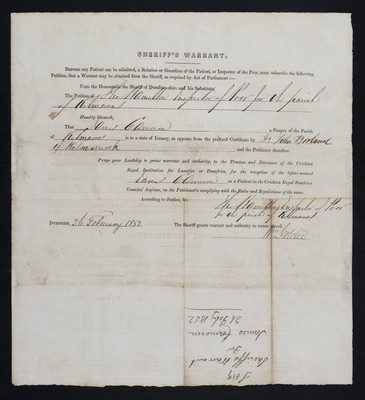 SHERIFF'S WARRANT.
BEFORE any Patient can be admitted, a Relation or Guardian of the Patient, or Inspector of the Poor, must subscribe the following
Petition, that a Warrant may be obtained from the Sheriff, as required by Act of Parliament :—
Unto the Honourable the Sheriff of Dumfries-shire and his Substitutes;
The Petition of Inspector of Poor for the parish
of Kilmaurs
Humbly Sheweth,
That James Cameron a Pauper of the Parish
of Kilmaurs is in a state of Lunacy, as appears from the prefixed Certificate by Dr John Borland
of Kilmarnock and the Petitioner therefore
Prays your Lordship to grant warrant and authority, to the Trustees and Directors of the Crichton
Royal Institution for Lunatics at Dumfries, for the reception of the before-named
James Cameron as a Patient in the Crichton Royal Southern
Counties' Asylum, on the Petitioner's complying with the Rules and Regulations of the same.
According to Justice, &c.
Inspector of Poor
for the parish of Kilmaurs
DUMFRIES, 26 February 1852 The Sheriff grants warrant and authority in terms
Sheriffs Warrant
for
James Cameron
26 Feby 1852